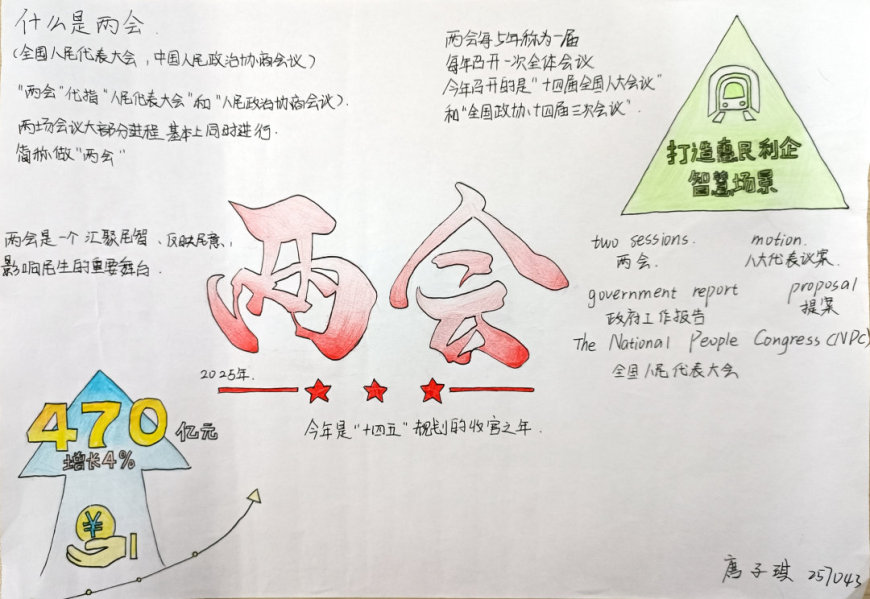 什么是两会
(全国人民代表大会，中国人民政治协商会议)
"两会"代指"人民代表大会"和"人民政治协商会议).
两场会议大部分进程基本上同时进行.
简称做"两会"
两会每5年称为一届
每年召开一次全体会议
今年召开的是"十四届全国人大会议"
和"全国政协十四届三次会议".
打造惠民利企
智慧场景
两会是一个汇聚民智、反映民意、
影响民生的重要舞台.
两会
2025年.
今年是"十四五"规划的收官之年.
two sessions. motion.
两会. 人大代表议案.
government report proposal
政府工作报告 提案
The National People Congress (NPC)
全国人民代表大会
470亿元
增长4%
¥
唐子琪 257043